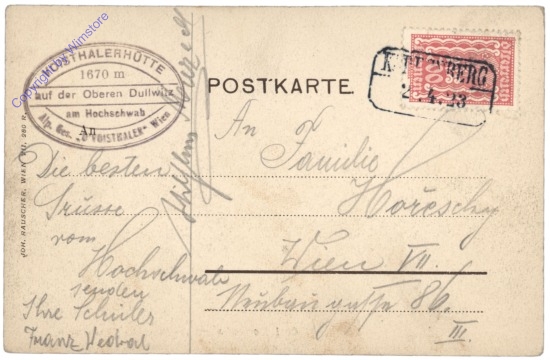 VOISTHALERHÜTTE
1670 m
auf der Oberen Dullwitz
am Hochschwab
Alp. Ges. „D'VOISTHALER“ Wien
Copyright Wimstore
An
POSTKARTE.
2.4.23
An
Familie
Horeschy
Wien VII.
Neubaugasse 86.
III.
Die besten
Grüsse
vom
Hochschwab
senden
Ihre Schüler
Franz
JOH. RAUSCHER, WIEN